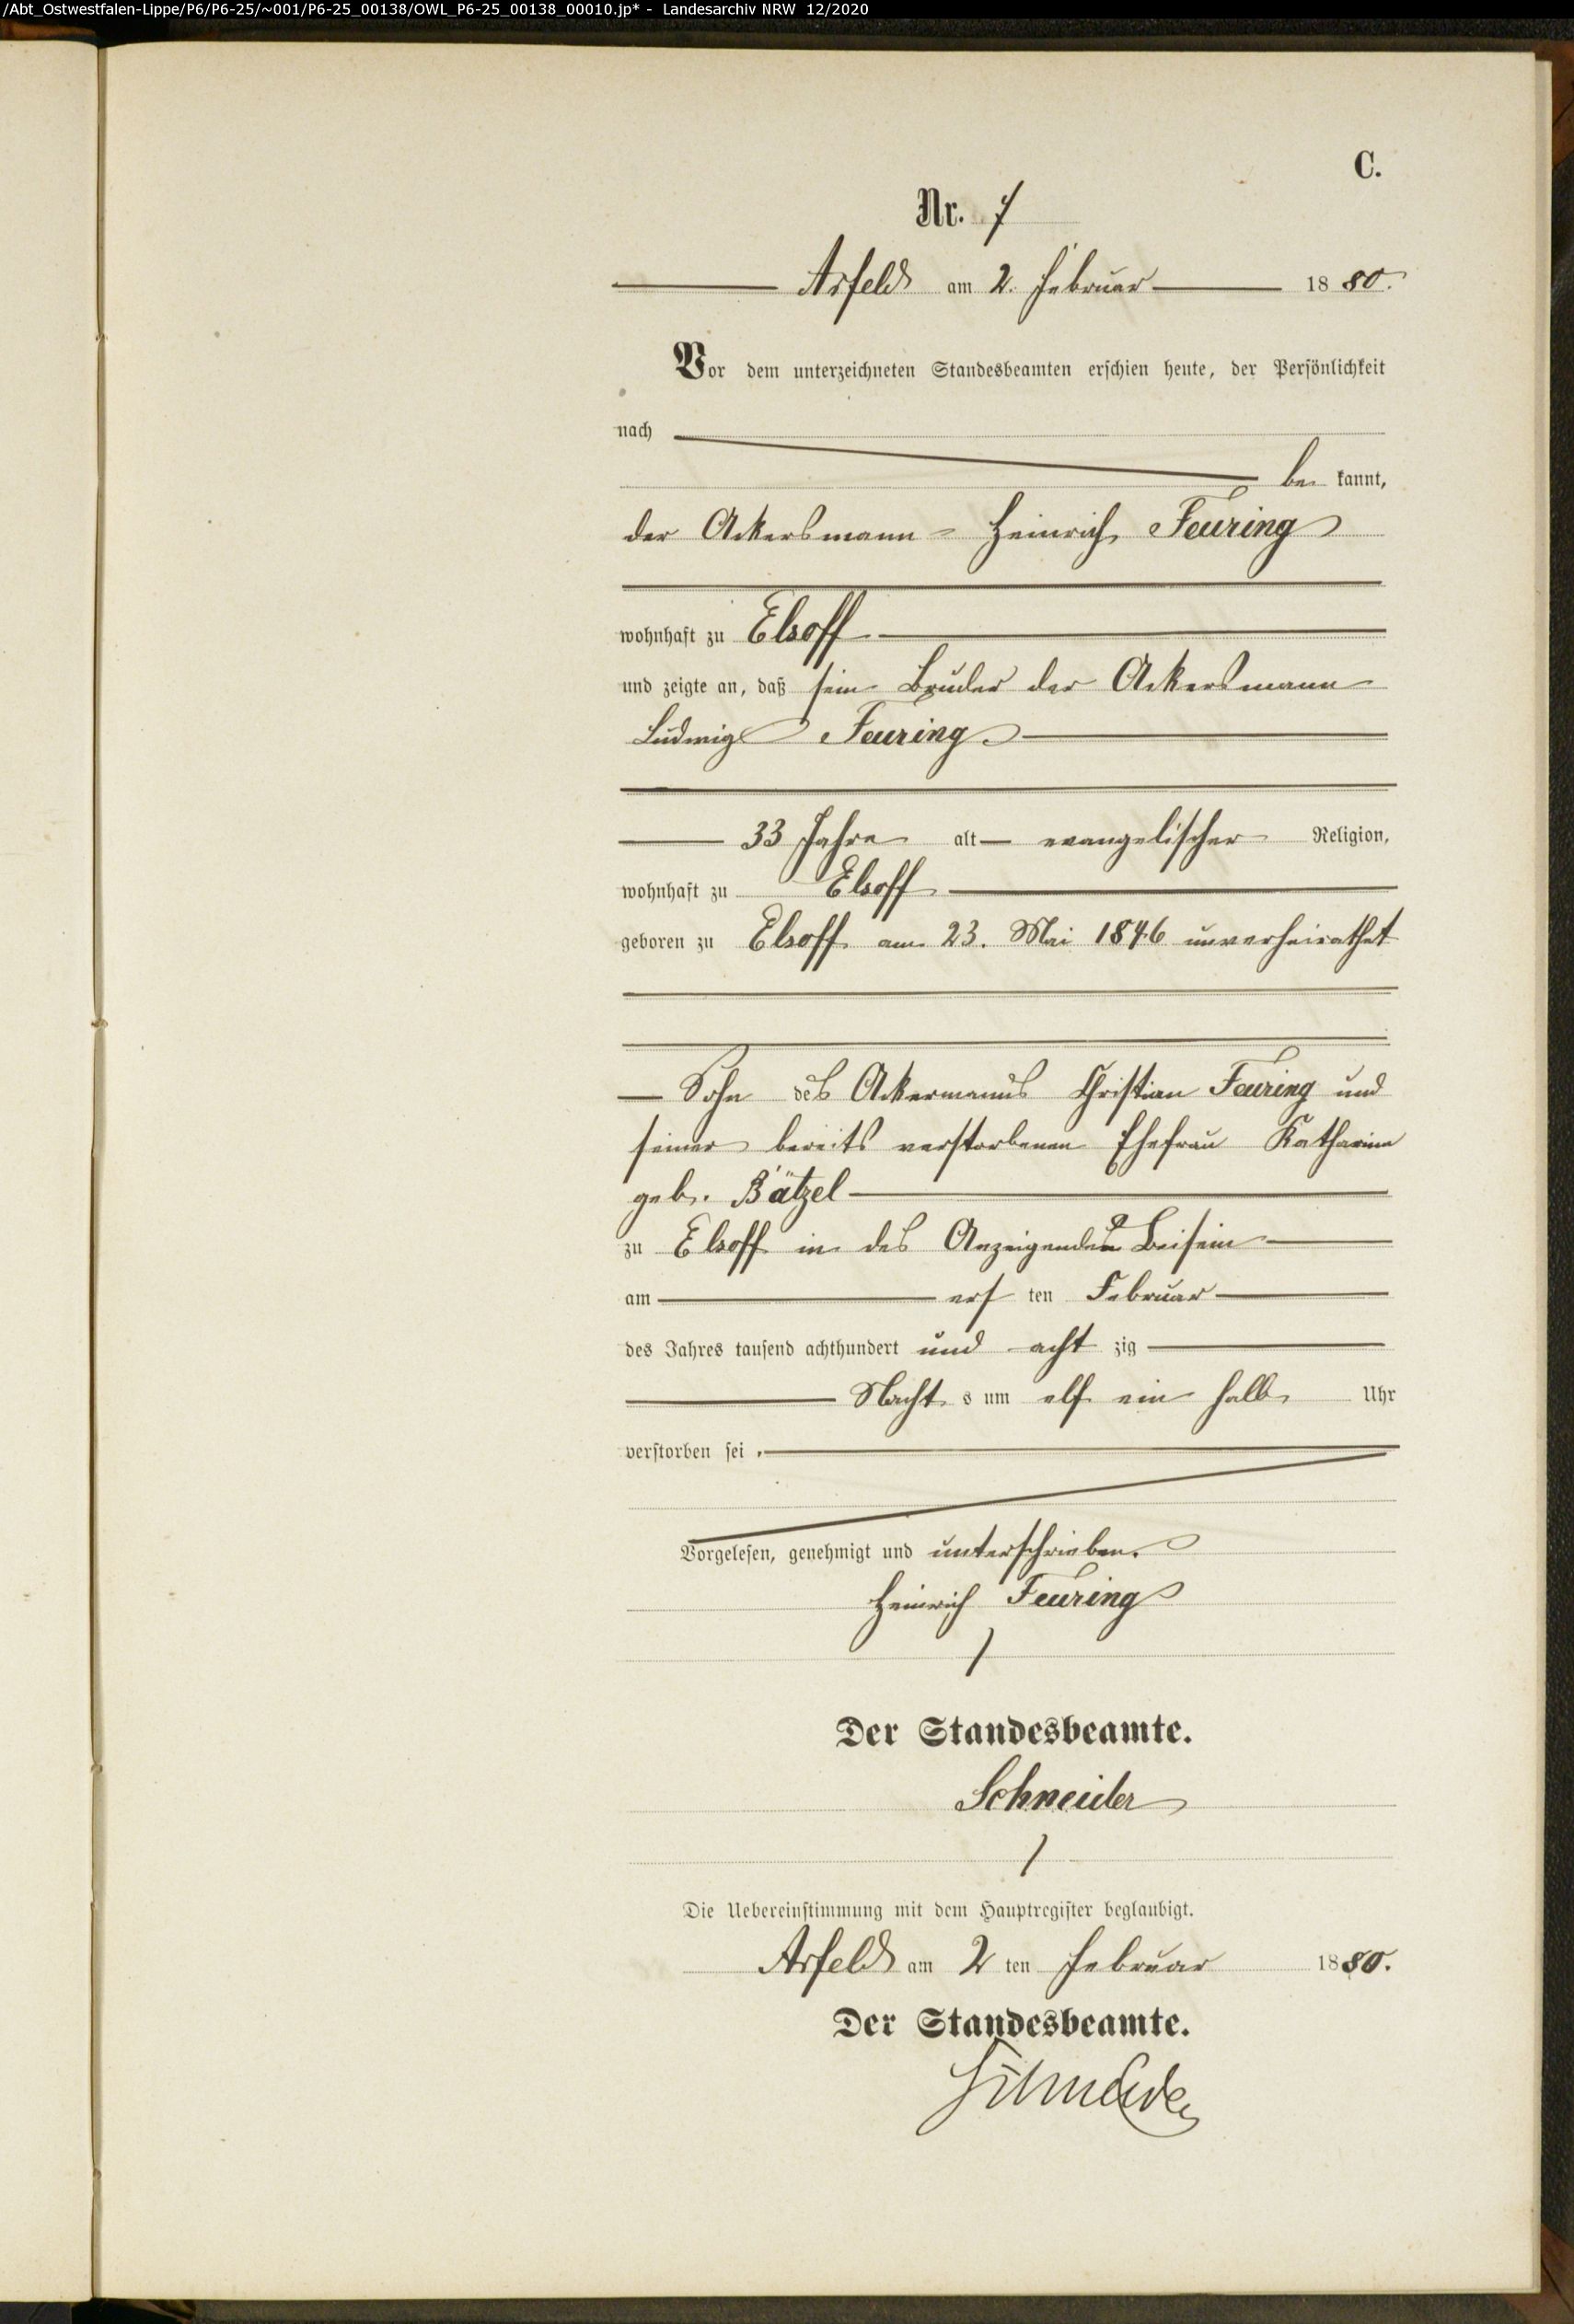 /Abt_Ostwestfalen-Lippe/P6/P6-25/~001/P6-25_00138/OWL_P6-25_00138_00010.jp* - Landesarchiv NRW 12/2020
C.
Nr. 7
Arfeld am 2. Februar 1880.
Vor dem unterzeichneten Standesbeamten erschien heute, der Persönlichkeit
nach
be kannt,
der Ackersmann Heinrich Feuring
wohnhaft zu Elsoff
und zeigte an, daß sein Bruder der Ackersmann
Ludwig Feuring
33 Jahre alt evangelischer Religion,
wohnhaft zu Elsoff
geboren zu Elsoff am 23. Mai 1846 unverheirathet
Sohn des Ackermanns Christian Feuring und
seiner bereits verstorbenen Ehefrau Katharina
geb. Bätzel
zu Elsoff in des Anzeigenden Beisein
am ers ten Februar
des Jahres tausend achthundert und acht zig
Nacht s um elf ein halb Uhr
verstorben sei.
Vorgelesen, genehmigt und unterschrieben.
Heinrich Feuring
Der Standesbeamte.
Schneider
Die Uebereinstimmung mit dem Hauptregister beglaubigt.
Arfeld am 2 ten Februar 1880.
Der Standesbeamte.
Schneider